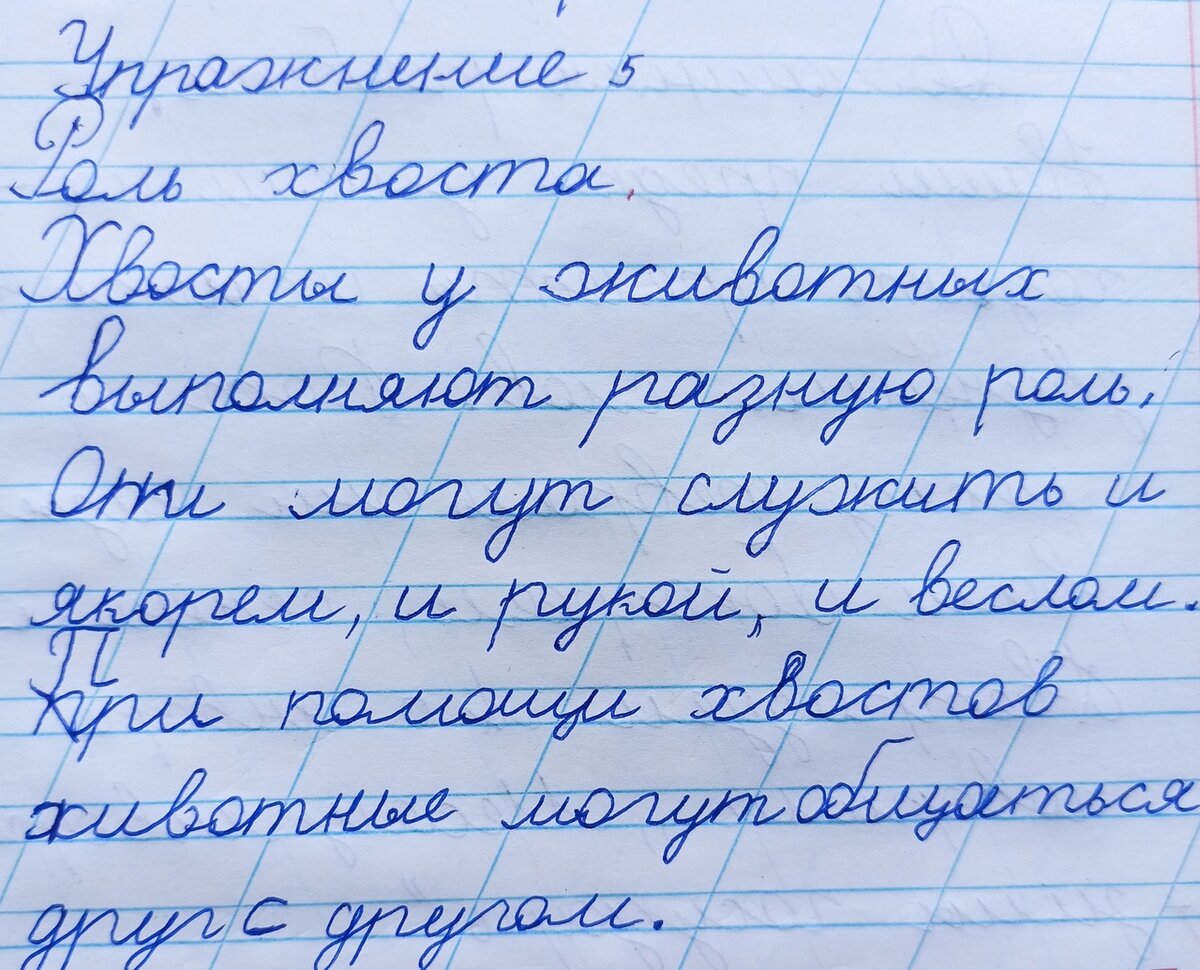 Упражнение 5
Роль хвоста.
Хвосты у животных
выполняют разную роль.
Они могут служить и
якорем, и рукой, и веслом.
При помощи хвостов
животные могут общаться
друг с другом.